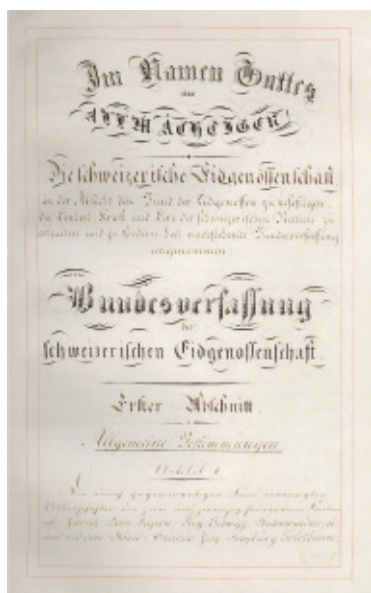 Im Namen Gottes
des
ALLMÄCHTIGEN!
Die schweizerische Eidgenossenschaft,
in der Absicht, den Bund der Eidgenossen zu befestigen,
die Einheit, Kraft und Ehre der schweizerischen Nation zu
erhalten und zu fördern, hat nachstehende Bundesverfassung
angenommen:
Bundesverfassung
der
schweizerischen Eidgenossenschaft.
Erster Abschnitt
Allgemeine Bestimmungen
Artikel 1
Die durch gegenwärtigen Bund vereinigten